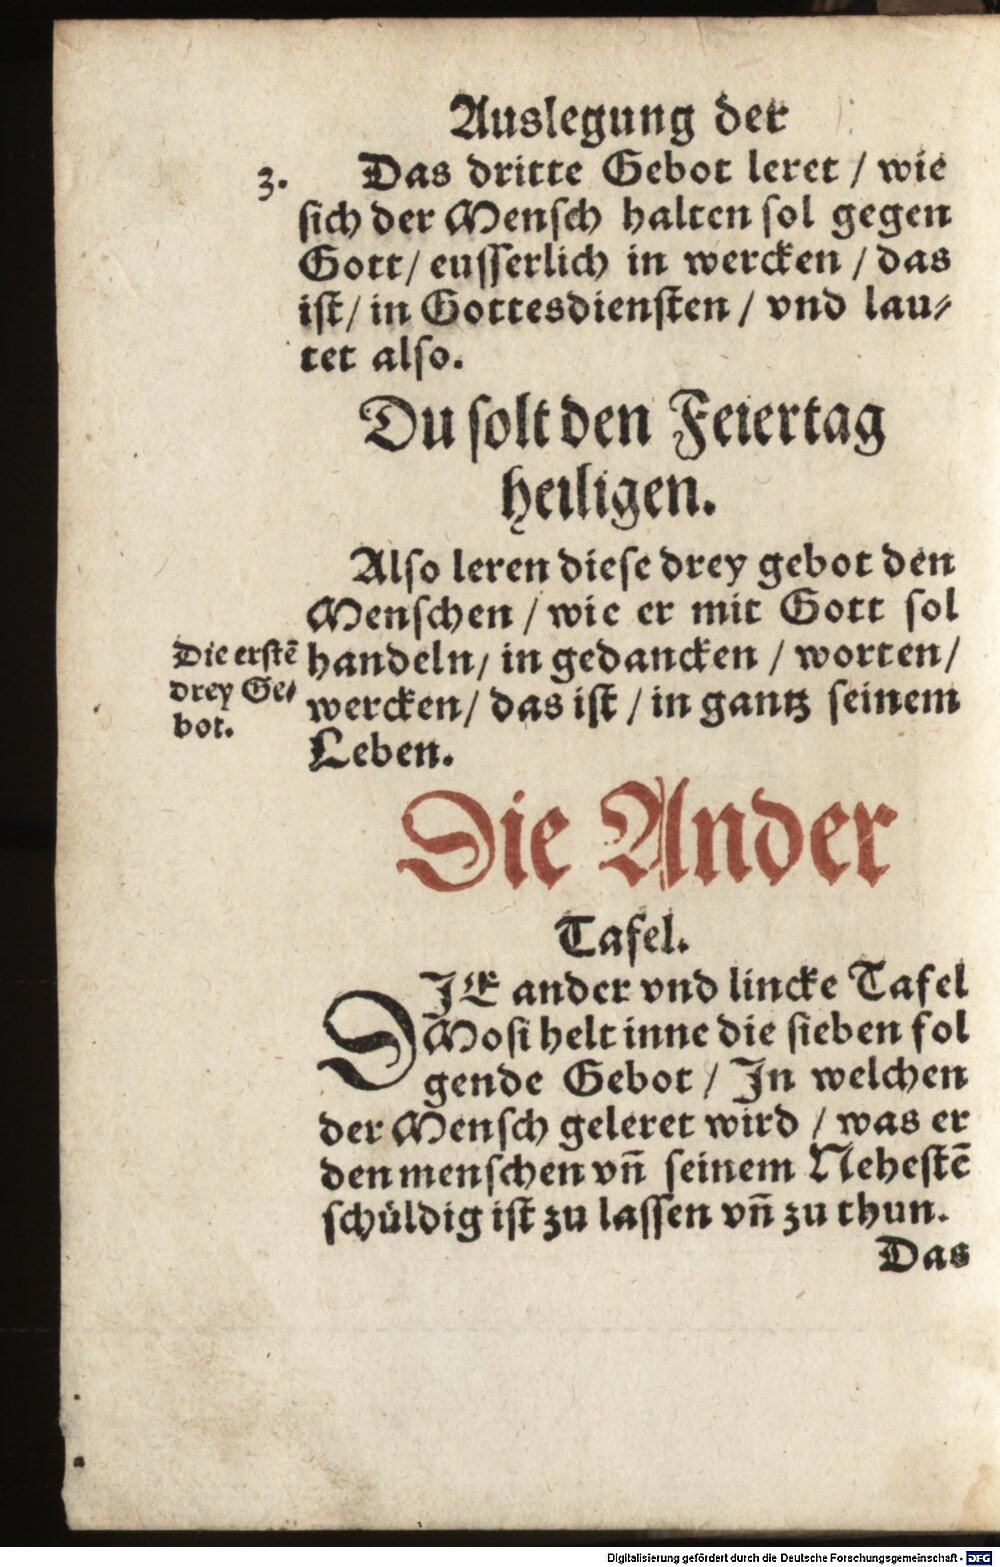 Auslegung der
3. Das dritte Gebot leret / wie
sich der Mensch halten sol gegen
Gott / eusserlich in wercken / das
ist / in Gottesdiensten / vnd lau⸗
tet also.
Du solt den Feiertag
heiligen.
Also leren diese drey gebot den
Menschen / wie er mit Gott sol
handeln / in gedancken / worten /
wercken / das ist / in gantz seinem
Leben.
Die erstē
drey Ge⸗
bot.
Die Ander
Tafel.
DIE ander vnd lincke Tafel
Mosi helt inne die sieben fol
gende Gebot / In welchen
der Mensch geleret wird / was er
den menschen vn̄ seinem Nehestē
schüldig ist zu lassen vn̄ zu thun.
Das
Digitalisierung gefördert durch die Deutsche Forschungsgemeinschaft - DFG